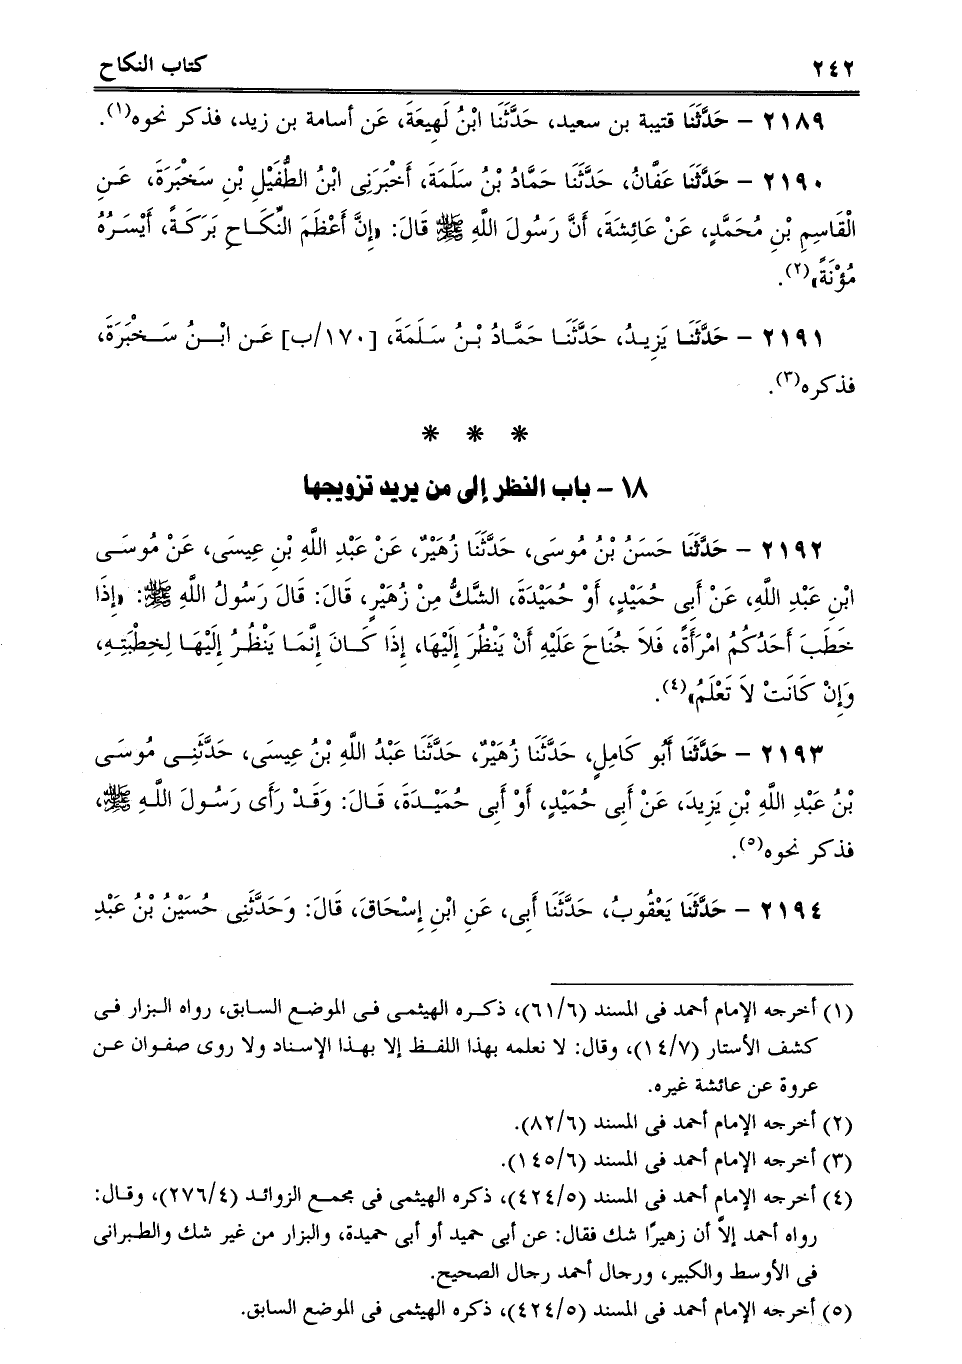 ٢٤٢ كتاب النكاح
٢١٨٩ – حَدَّثَنَا قتيبة بن سعيد، حَدَّثَنَا ابْنُ لَهِيعَةَ، عَن أسامة بن زيد، فذكر نحوه(١).
٢١٩٠ – حَدَّثَنَا عَفَّانُ، حَدَّثَنَا حَمَّادُ بْنُ سَلَمَةَ، أَخْبَرَنِى ابْنُ الطُّفَيْلِ بْنِ سَخْبَرَةَ، عَنِ
الْقَاسِمِ بْنِ مُحَمَّدٍ، عَنْ عَائِشَةَ، أَنَّ رَسُولَ اللَّهِ ﷺ قَالَ: «إِنَّ أَعْظَمَ النِّكَاحِ بَرَكَةً، أَيْسَرُهُ
مُؤْنَةً»(٢).
٢١٩١ – حَدَّثَنَا يَزِيدُ، حَدَّثَنَا حَمَّادُ بْنُ سَلَمَةَ، [١٧٠/ب] عَن ابْنُ سَخْبَرَةَ،
فذكره(٣).
* * *
١٨ – باب النظر إلى من يريد تزويجها
٢١٩٢ – حَدَّثَنَا حَسَنُ بْنُ مُوسَى، حَدَّثَنَا زُهَيْرٌ، عَنْ عَبْدِ اللَّهِ بْنِ عِيسَى، عَنْ مُوسَى
ابْنِ عَبْدِ اللَّهِ، عَنْ أَبِى حُمَيْدٍ، أَوْ حُمَيْدَةَ، الشَّكُّ مِنْ زُهَيْرٍ، قَالَ: قَالَ رَسُولُ اللَّهِ ﷺ: «إِذَا
خَطَبَ أَحَدُكُمُ امْرَأَةً، فَلَا جُنَاحَ عَلَيْهِ أَنْ يَنْظُرَ إِلَيْهَا، إِذَا كَانَ إِنَّمَا يَنْظُرُ إِلَيْهَا لِخِطْبَتِهِ،
وَإِنْ كَانَتْ لَا تَعْلَمُ»(٤).
٢١٩٣ – حَدَّثَنَا أَبُو كَامِلٍ، حَدَّثَنَا زُهَيْرٌ، حَدَّثَنَا عَبْدُ اللَّهِ بْنُ عِيسَى، حَدَّثَنِى مُوسَى
بْنُ عَبْدِ اللَّهِ بْنِ يَزِيدَ، عَنْ أَبِى حُمَيْدٍ، أَوْ أَبِى حُمَيْدَةَ، قَالَ: وَقَدْ رَأَى رَسُولَ اللَّهِ ﷺ،
فذكر نحوه(٥).
٢١٩٤ – حَدَّثَنَا يَعْقُوبُ، حَدَّثَنَا أَبِى، عَنِ ابْنِ إِسْحَاقَ، قَالَ: وَحَدَّثَنِى حُسَيْنُ بْنُ عَبْدِ
(١) أخرجه الإمام أحمد فى المسند (٦١/٦)، ذكره الهيثمى فى الموضع السابق، رواه البزار فى
كشف الأستار (١٤/٧)، وقال: لا نعلمه بهذا اللفظ إلا بهذا الإسناد ولا روى صفوان عن
عروة عن عائشة غيره.
(٢) أخرجه الإمام أحمد فى المسند (٨٢/٦).
(٣) أخرجه الإمام أحمد فى المسند (١٤٥/٦).
(٤) أخرجه الإمام أحمد فى المسند (٤٢٤/٥)، ذكره الهيثمى فى مجمع الزوائد (٢٧٦/٤)، وقال:
رواه أحمد إلاَّ أن زهيرًا شك فقال: عن أبى حميد أو أبى حميدة، والبزار من غير شك والطبرانى
فى الأوسط والكبير، ورجال أحمد رجال الصحيح.
(٥) أخرجه الإمام أحمد فى المسند (٤٢٤/٥)، ذكره الهيثمى فى الموضع السابق.